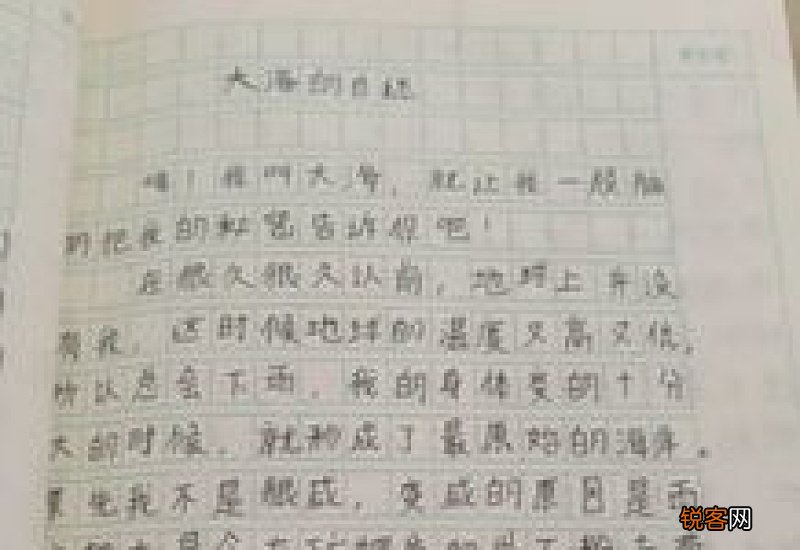 大海的自述
嗨！我叫大海，就让我一股脑
的把我的秘密告诉你吧！
在很久很久以前，地球上并没
有我，这时候地球的温度又高又低，
所以总会下雨，我的身体变的十分
大的时候，就形成了最原始的海洋。
其他我不是很咸，变咸的原因是雨
锐客网